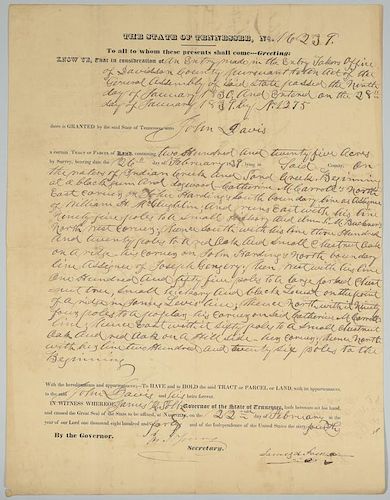 THE STATE OF TENNESSEE, No. 16239.
To all to whom these presents shall come—Greeting:
KNOW YE, That in consideration of An Entry made in the Entry Takers Office
of Davidson County pursuant to an Act of the
General Assembly of said State passed the Ninth
day of January 1830, And Entered on the 28th
day of January 1839 by No 1215
there is GRANTED by the said State of Tennessee unto
John Davis
A certain TRACT or PARCEL of LAND, containing two Hundred and twenty five Acres
by Survey, bearing date the 26th day of February 1839 lying in Said County, On
the waters of Indian Creek and Sand Creek Beginning
at a black gum and dogwood Catherine M Garretts North
East corner in John Hardings South boundary line as Assignee
of William H. McLaughlin and runs East with his line
Ninety five poles to a Small Hickory and elm Buckners
North West Corner, thence South with his line three Hundred
And twenty poles to a red Oak and Small Chestnut Oak
on a ridge his corner on John Hardings North boundary
line Assignee of Joseph thence West with his line
One Hundred and fifty five poles to a large forked Chest
nut tree Small Hickory and black Gum on the point
of a ridge in James line, thence North with it Ninety
four poles to a poplar his corner on said Catherine M Garretts
line, thence East with it Sixty poles to a Small Chestnut
Oak and red oak on a Hill side her corner, thence North
with his line two Hundred and twenty six poles to the
Beginning
With the hereditaments and appurtenances.—To HAVE and to HOLD the said TRACT or PARCEL OF LAND, with its appurtenances,
to the said John Davis and his heirs forever.
IN WITNESS WHEREOF, James K. Polk Governor of the State of Tennessee, hath hereunto set his hand,
and caused the Great Seal of the State to be affixed, at Nashville, on the 22nd day of February in the
year of our Lord one thousand eight hundred and forty and of the Independence of the United States the sixty fourth
By the Governor.
Secretary.